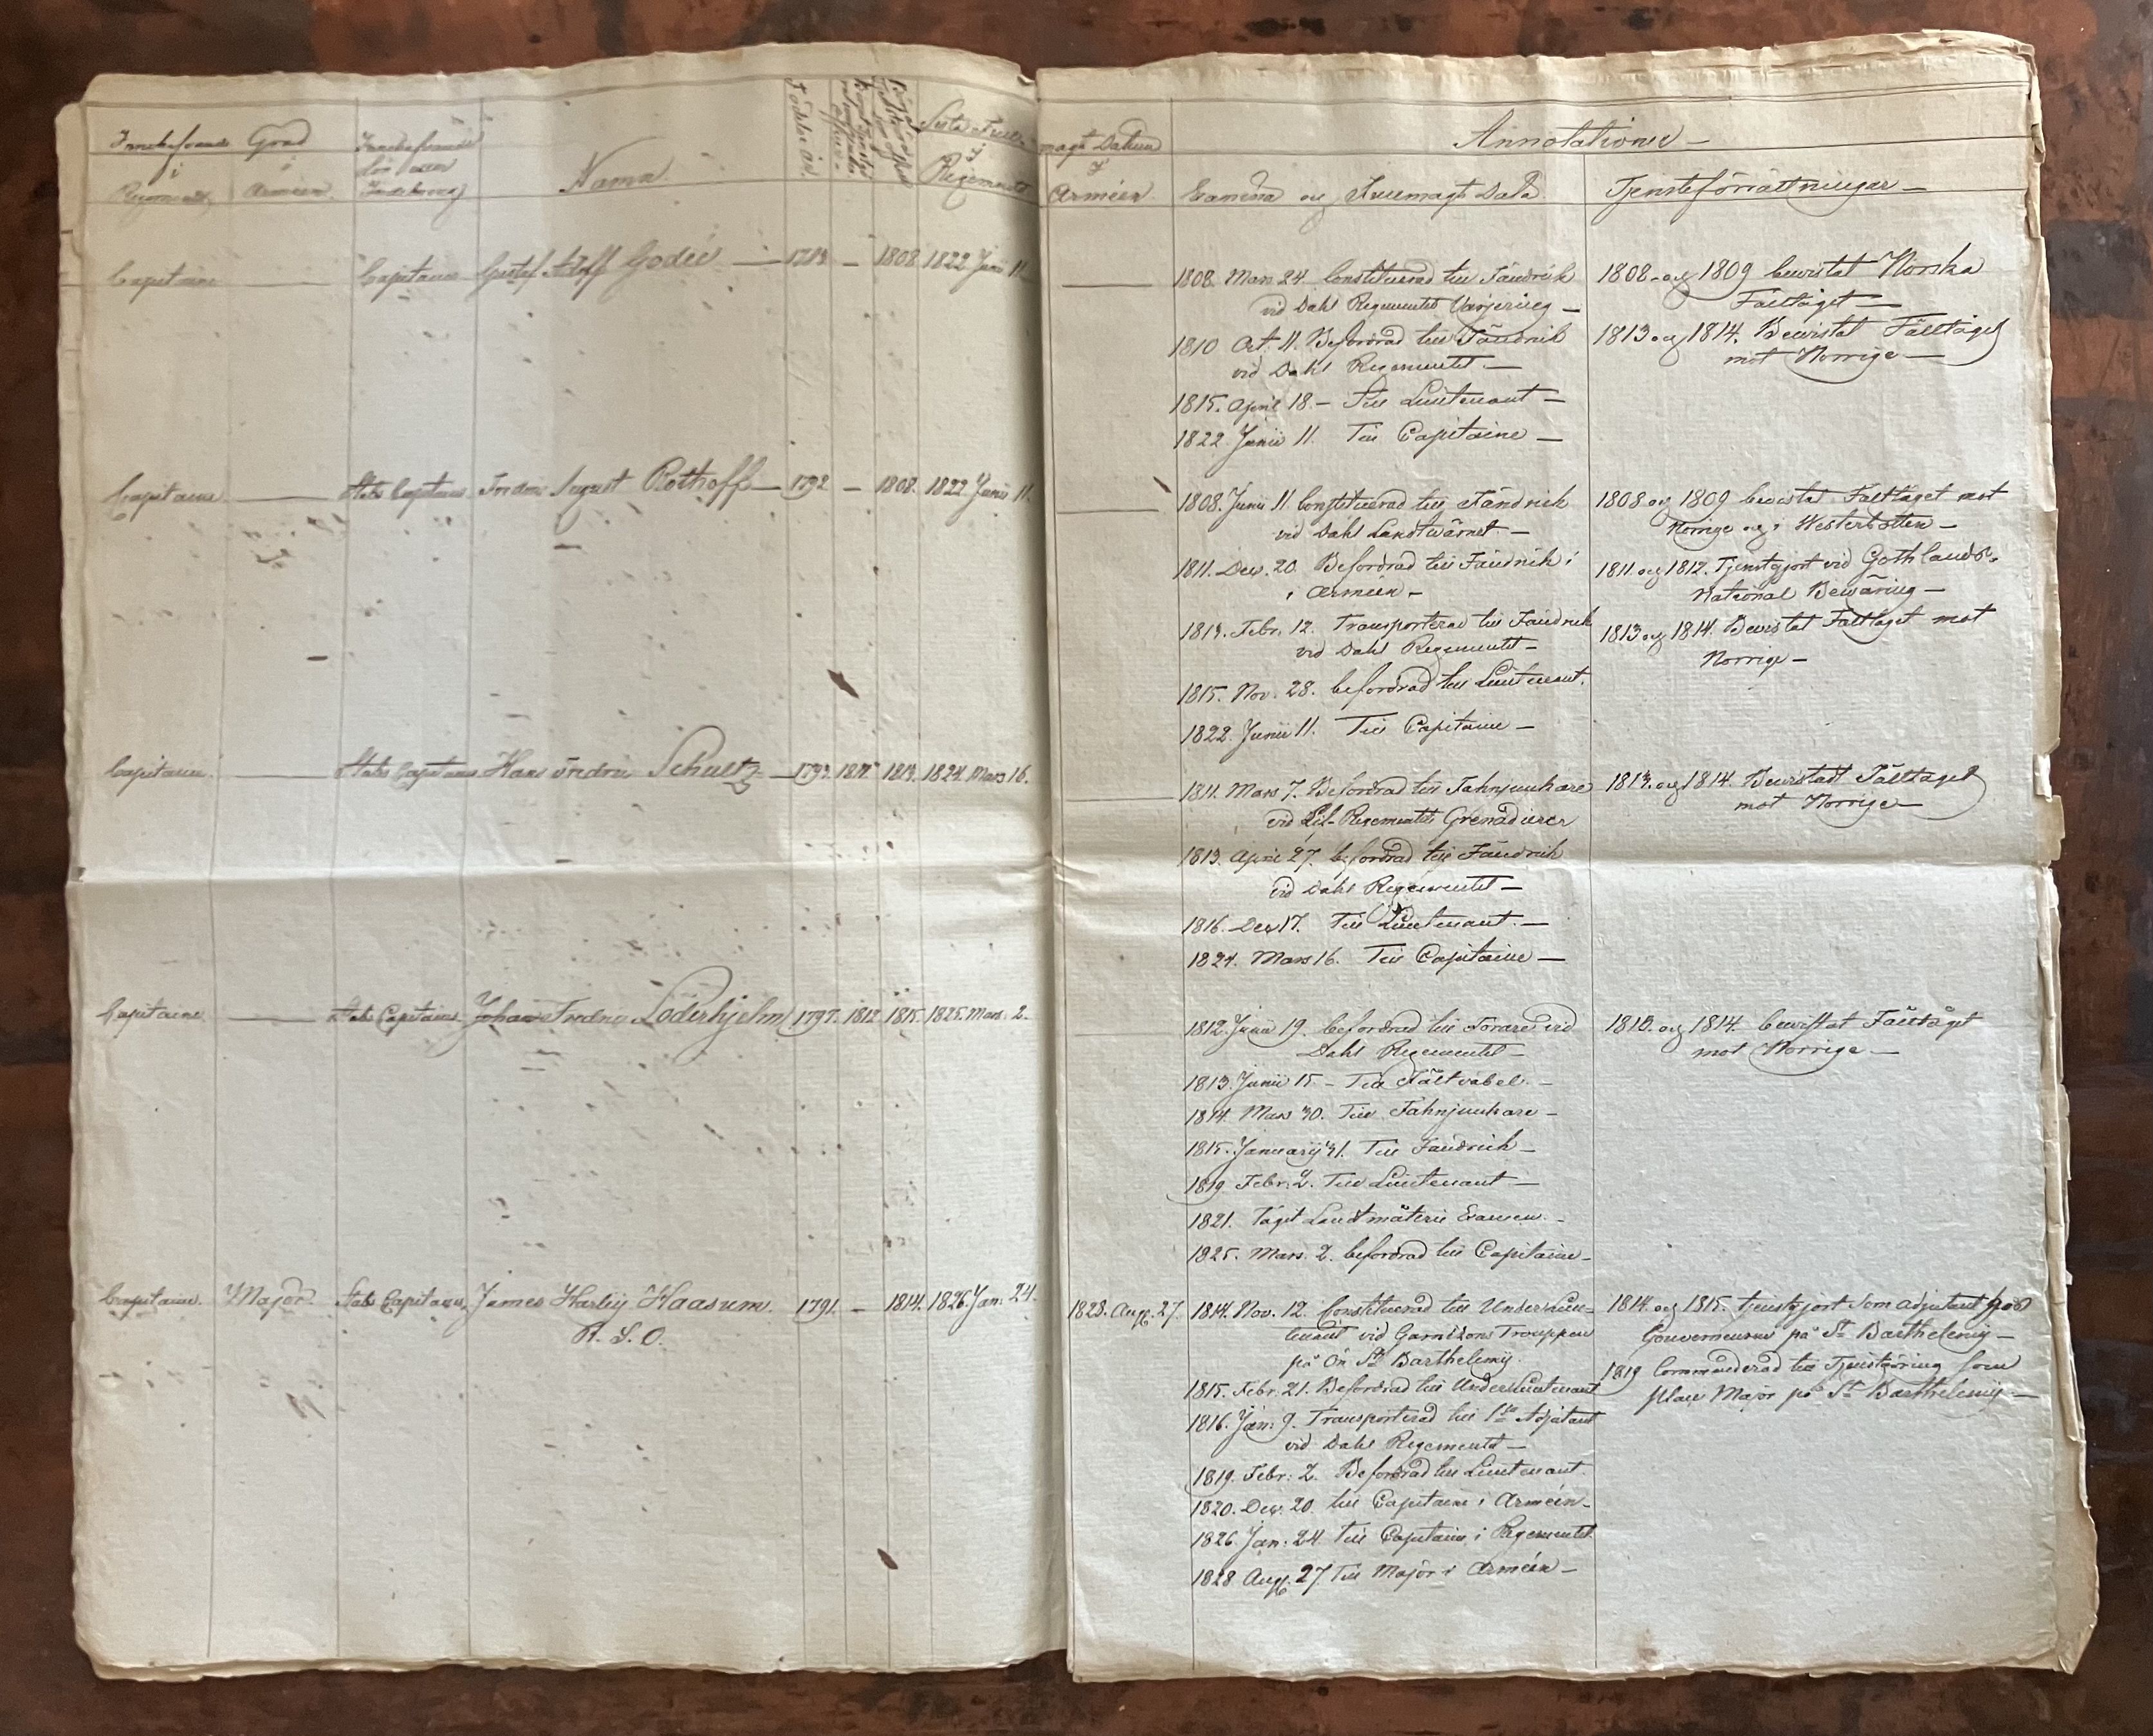 Innehafvande Grad Innehafvande Namn Födelse år Sista Full-
i i för egen i
Regemente Arméen. Indelning Regemente
magt Datum Annotationer —
i
Arméen. Examina och Fullmagts Data. Tjensteförrättningar —
Capitaine — Capitaine Gustaf Adolf Godée — — 1808. 1822 Junii 11.
1808. Mars 24. Constituerad till Fändrick
vid Dahls Regementes Vargering —
1810 Oct. 11. Befordrad till Fändrick
vid Dahls Regemente —
1815. April 18. — Till Lieutenant —
1822 Junii 11. Till Capitaine —
1808. och 1809 bevistat Norska
Fälttåget —
1813 och 1814. Bevistat Fälttåget
mot Norrige —
Capitaine — Stabs Capitaine Fredric August Rothoff — 1792 — 1808. 1822. Junii 11.
1808. Junii 11. Constituerad till Fändrick
vid Dahls Landtwärnet —
1811. Dec. 20. Befordrad till Fändrick i
i Arméen —
1813. Febr. 12. Transporterad till Fändrick
vid Dahls Regemente —
1815. Nov. 28. befordrad till Lieutenant.
1822. Junii 11. Till Capitaine —
1808 och 1809 bevistat Fälttåget mot
Norrige och i Westerbotten —
1811. och 1812. Tjenstgjort vid Gothlands-
National Bewäring —
1813 och 1814. Bevistat Fälttåget mot
Norrige —
Capitaine. — Stabs Capitaine Hans Fredric Schultz — 1793. 1811. 1813. 1824. Mars 16.
1811. Mars 7. Befordrad till Fahnjunkare
vid Lif-Regementets Grenadierer
1813. April 27. befordrad till Fändrick
vid Dahls Regemente —
1816. Dec 17. Till Lieutenant. —
1824. Mars 16. Till Capitaine —
1813. och 1814. Bevistadt Fälttåget
mot Norrige —
Capitaine. — Stabs Capitaine Johan Fredric Löderhjelm 1797. 1812 1815. 1825. Mars. 2.
1812. Junii 19. befordrad till Förare vid
Dahls Regemente —
1813. Junii 15 — Till Fältväbel. —
1814. Mars 30. Till Fahnjunkare —
1815. Januarij 31. Till Fändrick —
1819 Febr. 2. Till Lieutenant —
1821. Taget Landtmäterie Examen. —
1825. Mars. 2. befordrad till Capitaine —
1813. och 1814. bevistat Fälttåget
mot Norrige —
Capitaine. Major. Stabs Capitaine James Harlij Haasum. 1791. — 1814. 1826. Jan. 24.
R. S. O.
1828. Aug. 27.
1814. Nov. 12. Constituerad till Under Lieu-
tenant vid Garnizons Trouppen
på Ön St Barthelemij.
1815. Febr. 21. Befordrad till Under Lieutenant
1816. Jan. 9. Transporterad till 1ste Adjutant
vid Dahls Regemente —
1819. Febr. 2. Befordrad till Lieutenant.
1820. Dec. 20. till Capitaine i Arméen —
1826. Jan. 24. till Capitaine i Regementet
1828 Aug. 27 Till Major i Arméen —
1814. och 1815. tjenstgjort som adjutant hos
Gouverneuren på St Barthelemij —
1819 Commenderad till Tjenstgöring som
place Major på St Barthelemij —